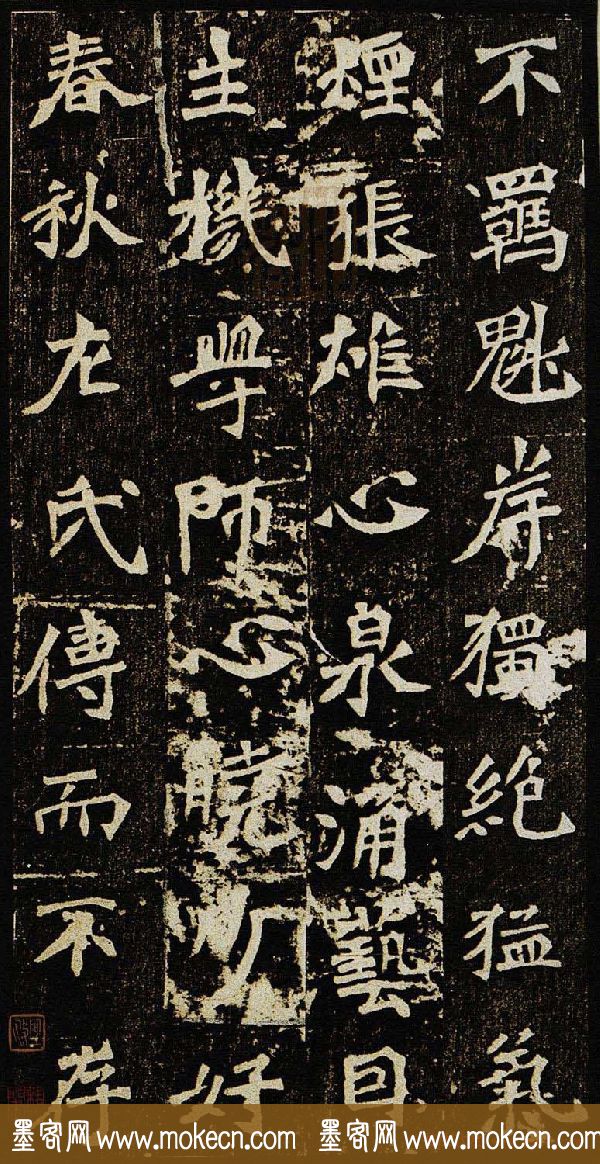 不羈魁岸獨絕猛氣
煙張雄心泉涌藝自
生機學師心曉少好
春秋左氏傳而不存
墨客网 www.mokecn.com 墨客网 www.mokecn.com